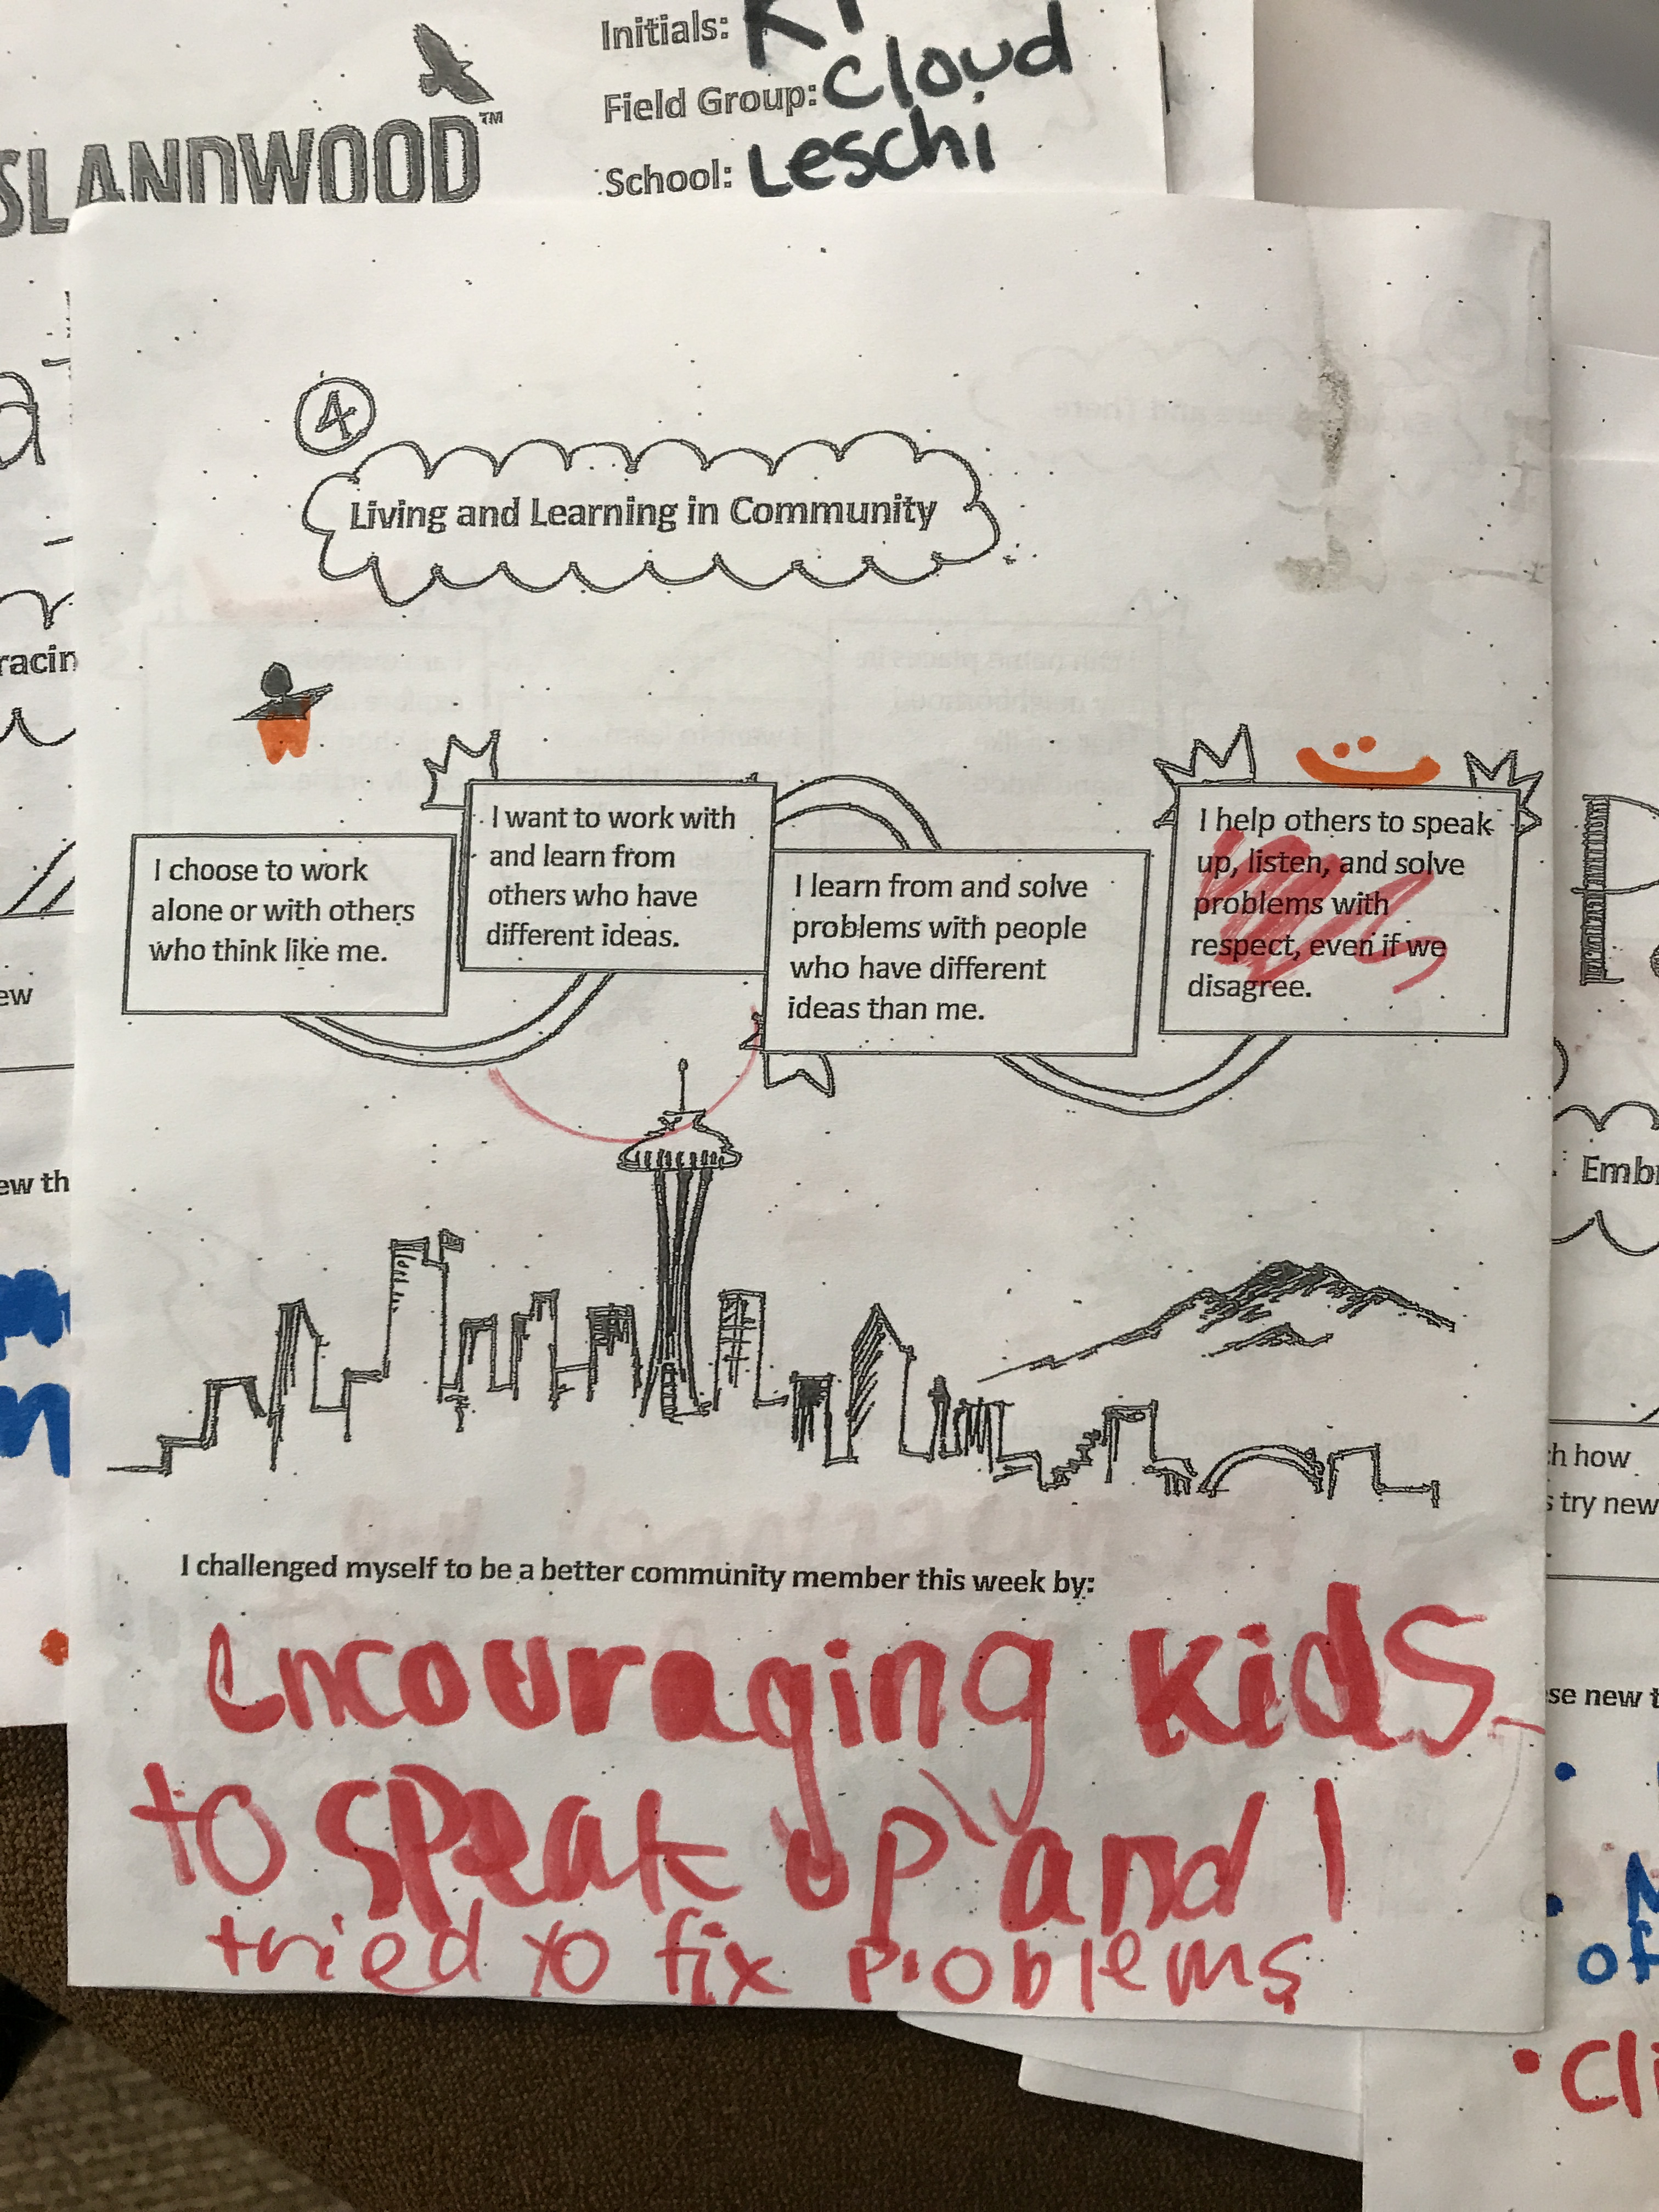 Initials:
Field Group: Cloud
School: Leschi
SLANDWOOD™
4
Living and Learning in Community
I choose to work
alone or with others
who think like me.
I want to work with
and learn from
others who have
different ideas.
I learn from and solve
problems with people
who have different
ideas than me.
I help others to speak
up, listen, and solve
problems with
respect, even if we
disagree.
I challenged myself to be a better community member this week by:
encouraging kids
to speak up and I
tried to fix problems
racin
ew
ew th
Emb
h how
s try new
se new t
of
• Cli